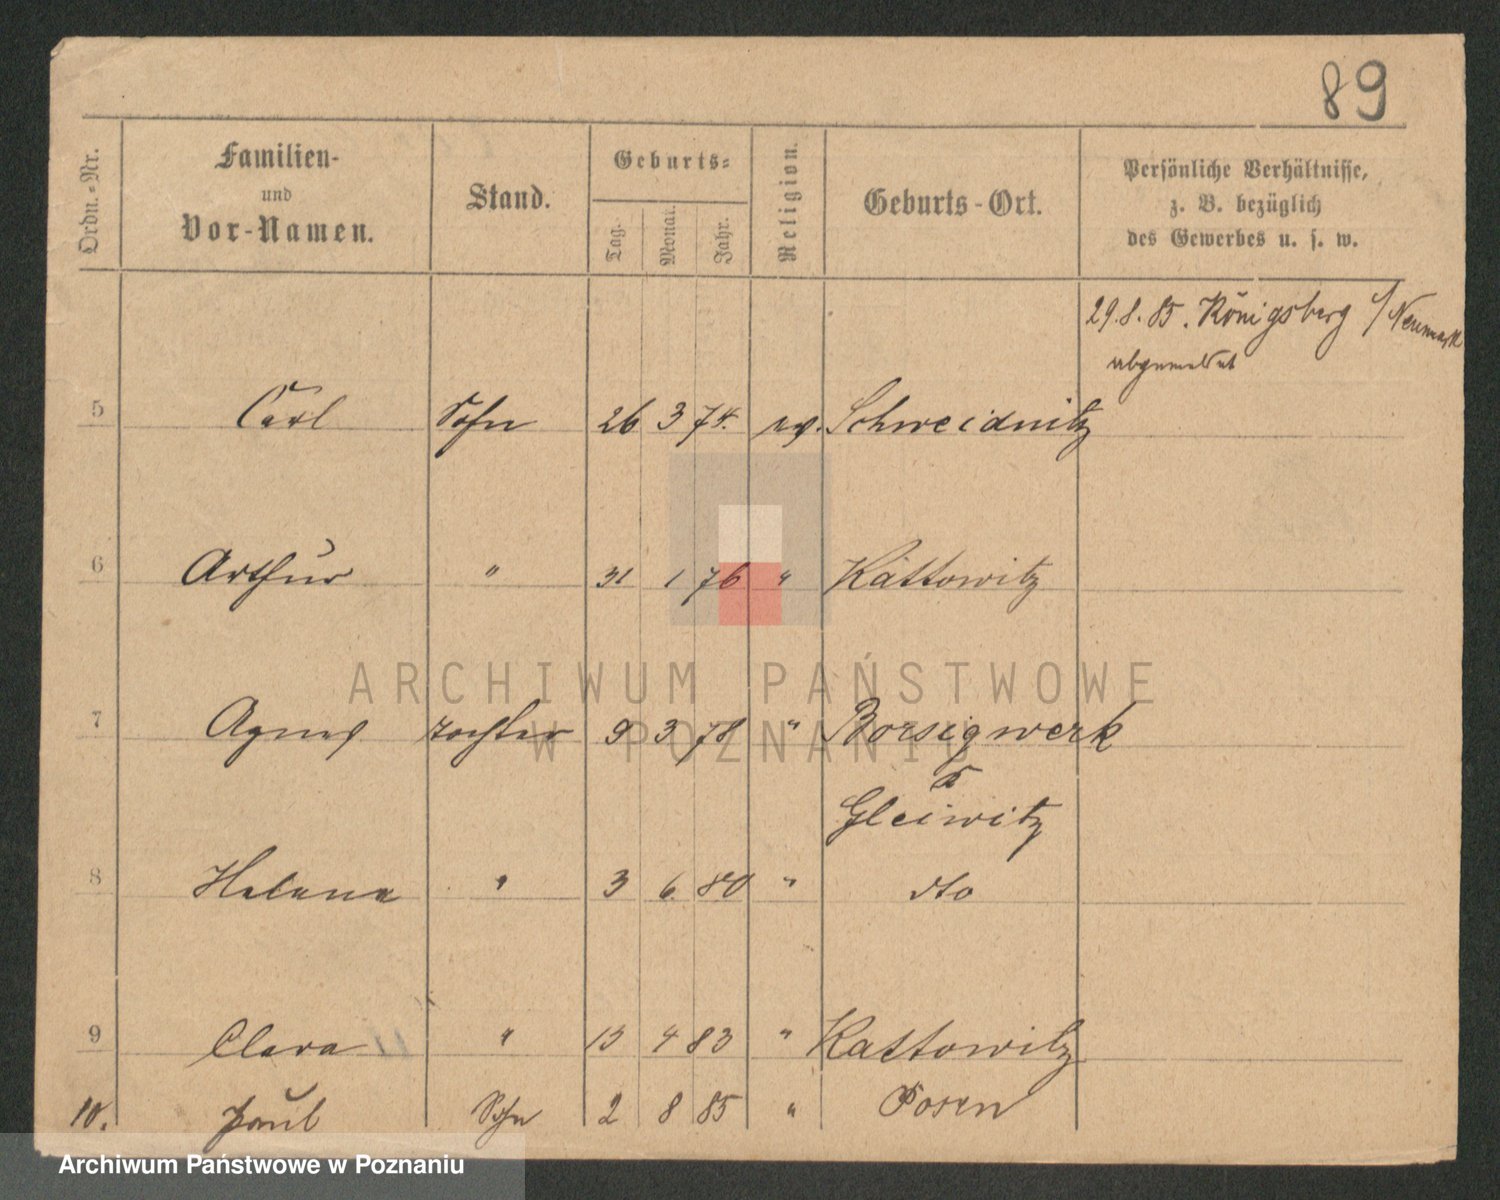 89
Ordn.-Nr. Familien- und Vor-Namen. Stand. Geburts- Tag. Monat. Jahr. Religion. Geburts-Ort. Persönliche Verhältnisse, z. B. bezüglich des Gewerbes u. s. w.
29.8.85. Königsberg i/Neumark
abgemeldet
5 Carl Sohn 26 3 74. ev. Schweidnitz
6 Arthur " 31 1 76 " Kattowitz
7 Agnes Tochter 9 3 78 " Borsigwerk
Gleiwitz
8 Helena " 3 6 80 " dto
9 Clara " 13 4 83 " Kattowitz
10. Paul Sohn 2 8 85 " Posen
ARCHIWUM PAŃSTWOWE
W POZNANIU
Archiwum Państwowe w Poznaniu